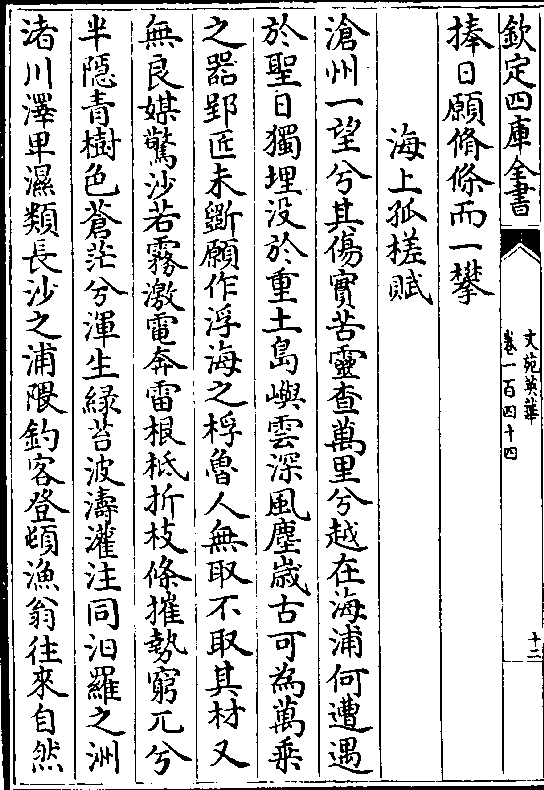 欽定四庫全書
文苑英華
卷一百四十四
十二
捧日願脩條而一攀
海上孤槎賦
滄州一望兮其傷實苦靈查萬里兮越在海浦何遭遇
於聖日獨埋没於重土島嶼雲深風塵歲古可為萬乘
之器郢匠未斵願作浮海之桴魯人無取不取其材又
無良媒驚沙若霧激電奔雷根柢折枝條摧勢窮兀兮
半隱青樹色蒼茫兮渾生緑苔波濤灌注同汩羅之洲
渚川澤卑濕類長沙之浦隈釣客登頓漁翁往來自然